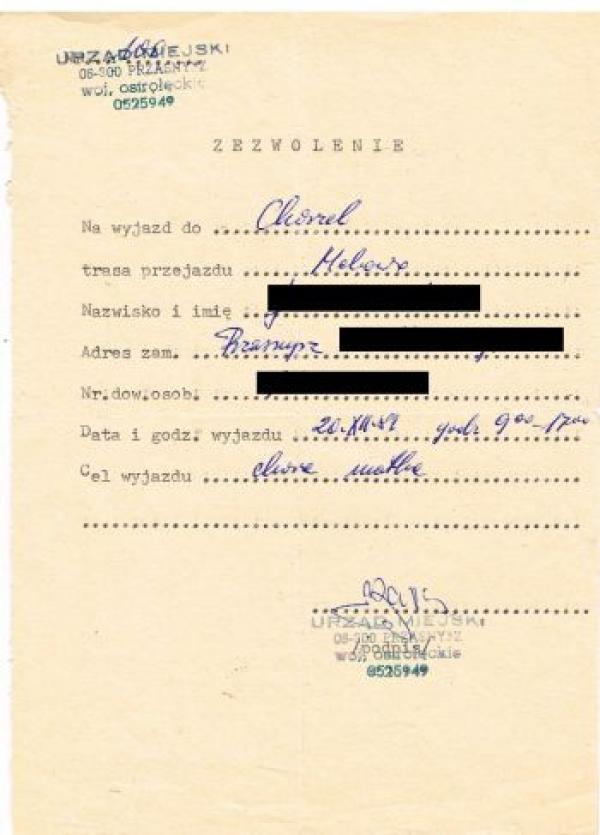 URZĄD MIEJSKI
06-300 PRZASNYSZ
woj. ostrołęckie
0525949
ZEZWOLENIE
Na wyjazd do Chorzel
trasa przejazdu
Nazwisko i imię
Adres zam. Przasnysz
Nr.dow.osob.
Data i godz. wyjazdu 20.XII.81 godz 9⁰⁰-17⁰⁰
Cel wyjazdu chora matka
URZĄD MIEJSKI
06-300 PRZASNYSZ
/podpis/
woj. ostrołęckie
0525949